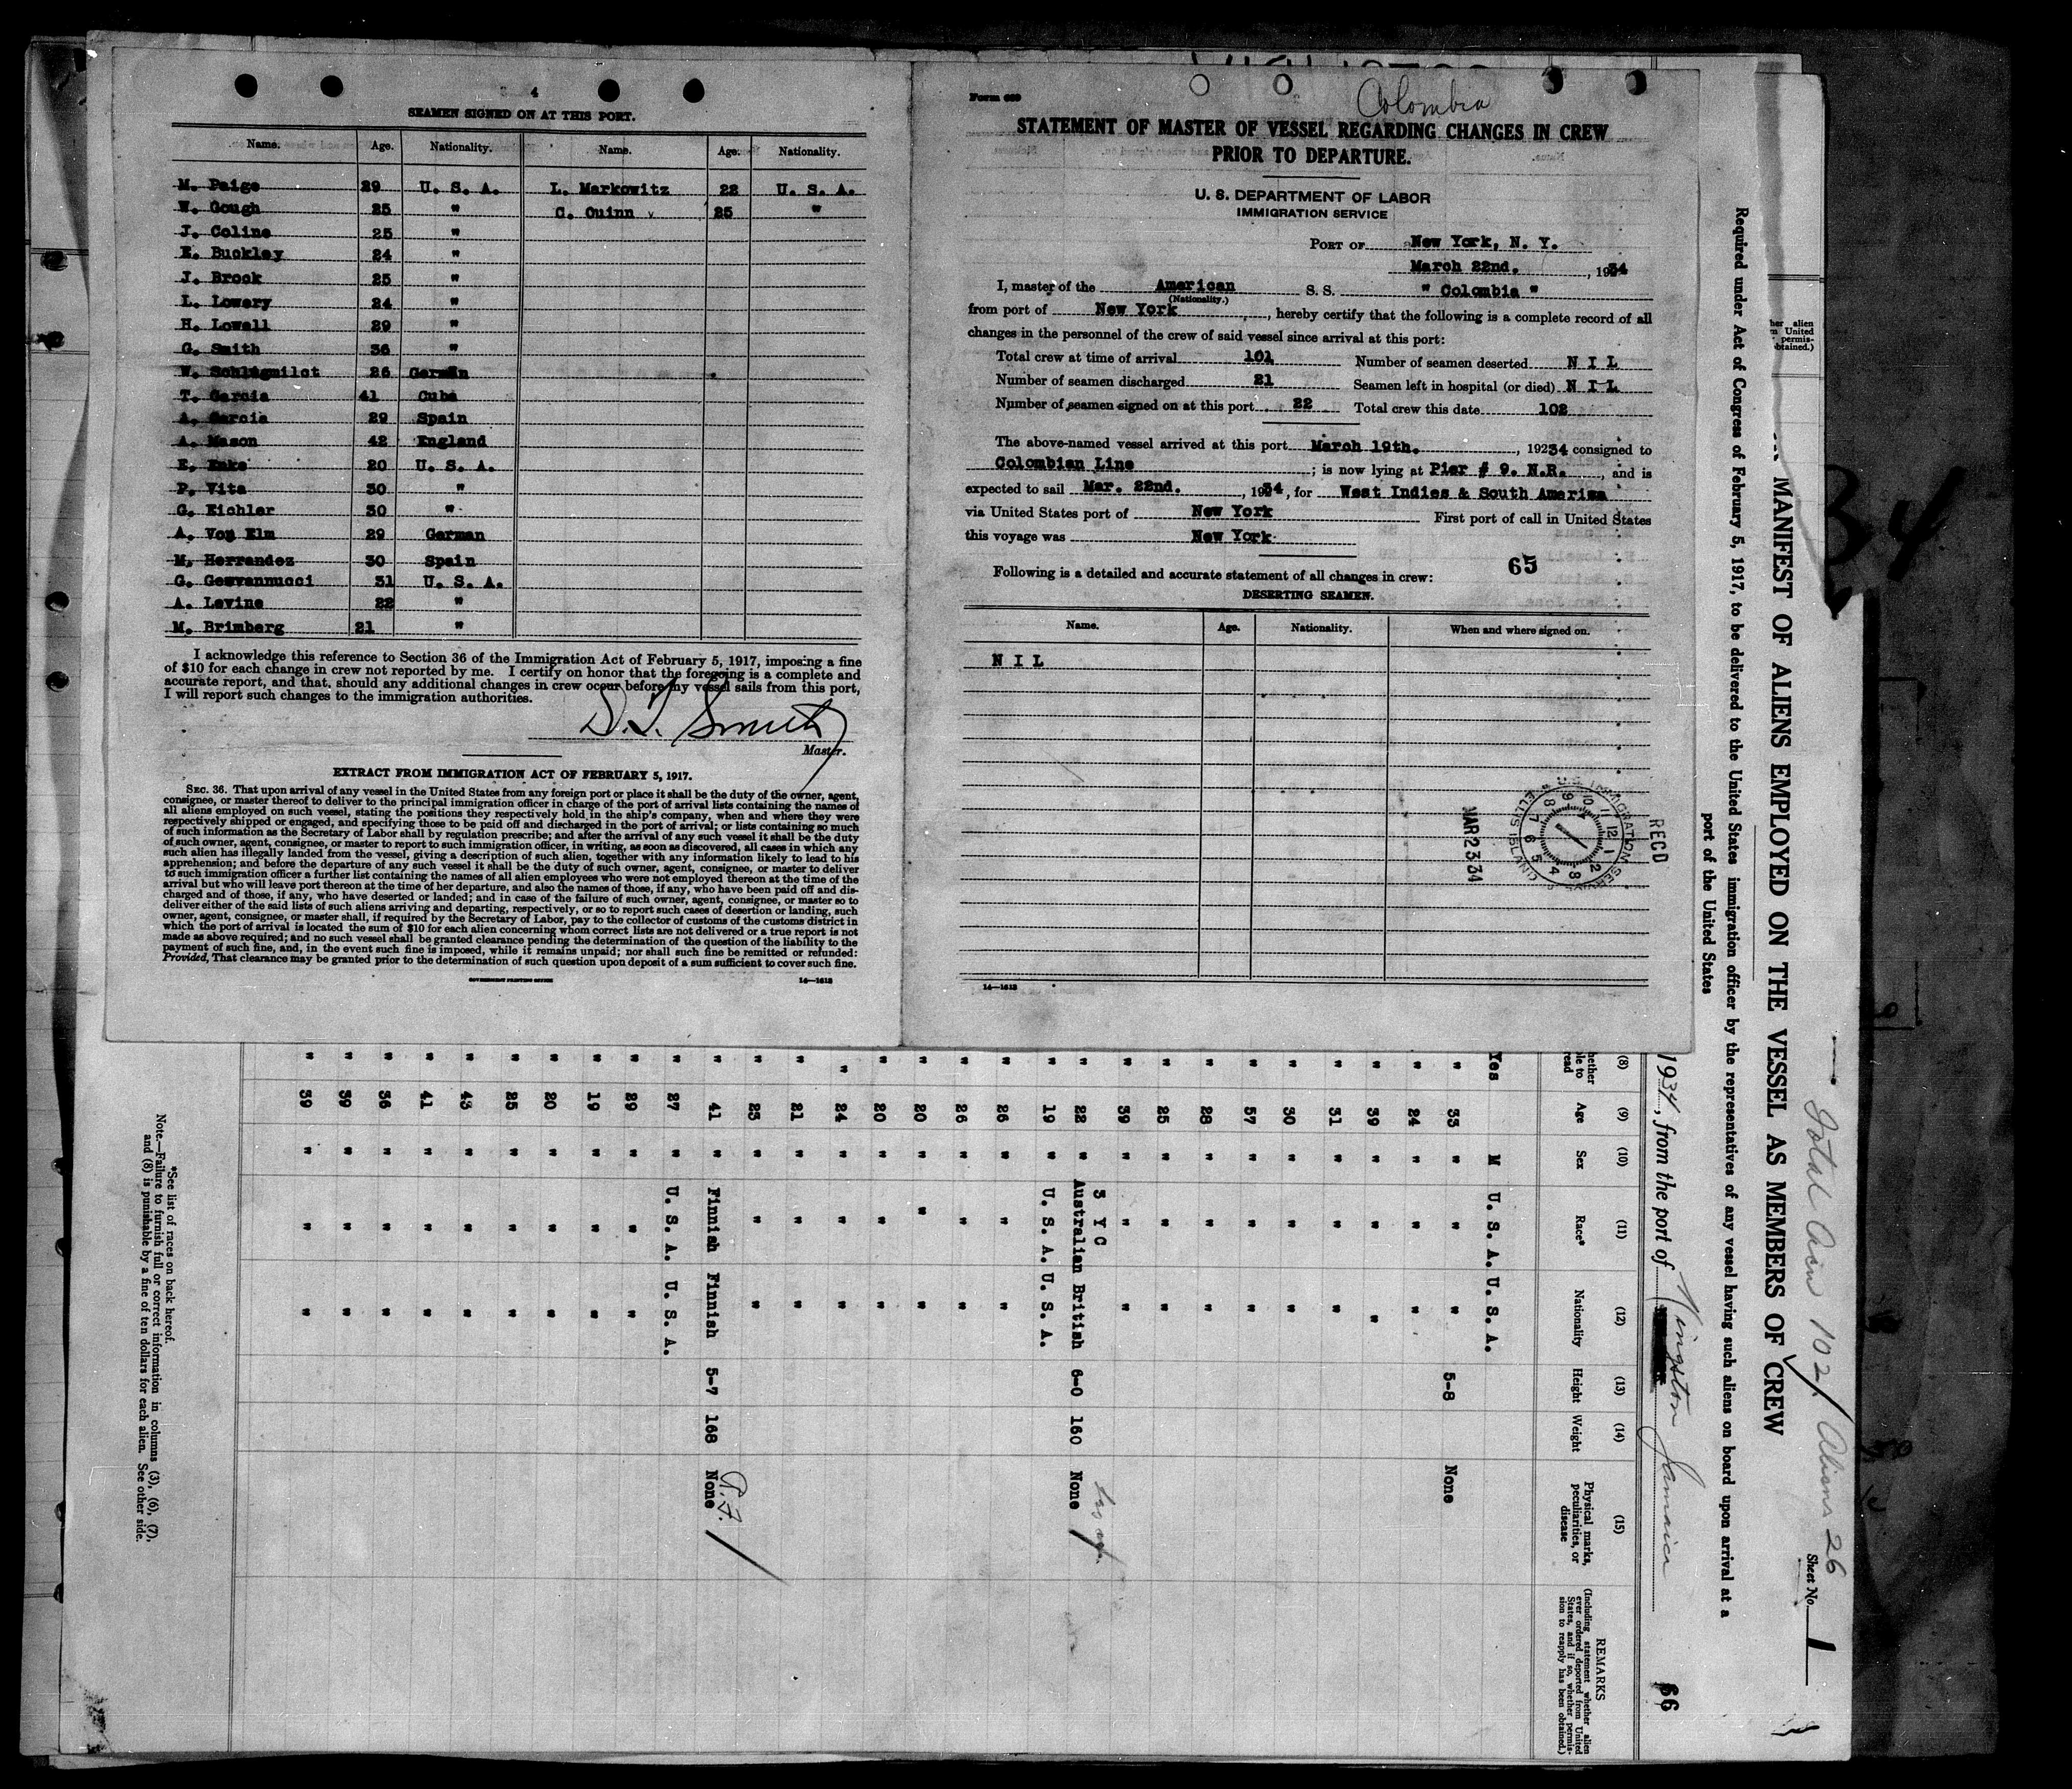 4
SEAMEN SIGNED ON AT THIS PORT.
Name. Age. Nationality. Name. Age. Nationality.
M. Paige 29 U. S. A. L. Markowitz 22 U. S. A.
W. Gough 25 " C. Quinn 25 "
J. Coline 25 "
E. Buckley 24 "
J. Brock 25 "
L. Lowery 24 "
H. Lowell 29 "
G. Smith 36 "
W. 26 German
T. Garcia 41 Cuba
A. Garcia 29 Spain
A. Mason 42 England
E. 20 U. S. A.
P. Vita 30 "
G. Eichler 30 "
A. Von Elm 29 German
M. Herrandez 30 Spain
G. 31 U. S. A.
A. Levine 22 "
M. Brimberg 21 "
I acknowledge this reference to Section 36 of the Immigration Act of February 5, 1917, imposing a fine
of $10 for each change in crew not reported by me. I certify on honor that the foregoing is a complete and
accurate report, and that, should any additional changes in crew occur before my vessel sails from this port,
I will report such changes to the immigration authorities.
Smith
Master.
EXTRACT FROM IMMIGRATION ACT OF FEBRUARY 5, 1917.
SEC. 36. That upon arrival of any vessel in the United States from any foreign port or place it shall be the duty of the owner, agent,
consignee, or master thereof to deliver to the principal immigration officer in charge of the port of arrival lists containing the names of
all aliens employed on such vessel, stating the positions they respectively hold in the ship's company, when and where they were
respectively shipped or engaged, and specifying those to be paid off and discharged in the port of arrival; or lists containing so much
of such information as the Secretary of Labor shall by regulation prescribe; and after the arrival of any such vessel it shall be the duty
of such owner, agent, consignee, or master to report to such immigration officer, in writing, as soon as discovered, all cases in which any
such alien has illegally landed from the vessel, giving a description of such alien, together with any information likely to lead to his
apprehension; and before the departure of any such vessel it shall be the duty of such owner, agent, consignee, or master to deliver
to such immigration officer a further list containing the names of all alien employees who were not employed thereon at the time of the
arrival but who will leave port thereon at the time of her departure, and also the names of those, if any, who have been paid off and dis-
charged and of those, if any, who have deserted or landed; and in case of the failure of such owner, agent, consignee, or master so to
deliver either of the said lists of such aliens arriving and departing, respectively, or so to report such cases of desertion or landing, such
owner, agent, consignee, or master shall, if required by the Secretary of Labor, pay to the collector of customs of the customs district in
which the port of arrival is located the sum of $10 for each alien concerning whom correct lists are not delivered or a true report is not
made as above required; and no such vessel shall be granted clearance pending the determination of the question of the liability to the
payment of such fine, and, in the event such fine is imposed, while it remains unpaid; nor shall such fine be remitted or refunded:
Provided, That clearance may be granted prior to the determination of such question upon deposit of a sum sufficient to cover such fine.
GOVERNMENT PRINTING OFFICE 14—1613
Form 689
Colombia
STATEMENT OF MASTER OF VESSEL REGARDING CHANGES IN CREW
PRIOR TO DEPARTURE.
U. S. DEPARTMENT OF LABOR
IMMIGRATION SERVICE
PORT OF New York, N. Y.
March 22nd. , 1934
I, master of the American S. S. " Colombia "
(Nationality.)
from port of New York, hereby certify that the following is a complete record of all
changes in the personnel of the crew of said vessel since arrival at this port:
Total crew at time of arrival 101 Number of seamen deserted N I L
Number of seamen discharged 21 Seamen left in hospital (or died) N I L
Number of seamen signed on at this port 22 Total crew this date 102
The above-named vessel arrived at this port March 19th. , 19234 consigned to
Colombian Line ; is now lying at Pier # 9. N.R. , and is
expected to sail Mar. 22nd. , 1934, for West Indies & South America
via United States port of New York First port of call in United States
this voyage was New York
65
Following is a detailed and accurate statement of all changes in crew:
DESERTING SEAMEN.
Name. Age. Nationality. When and where signed on.
N I L
RECD
U.S. IMMIGRATION SERVICE ELLIS ISLAND
MAR 23 34
14—1613
34
Total Crew 102 / Aliens 26
Sheet No. 1
MANIFEST OF ALIENS EMPLOYED ON THE VESSEL AS MEMBERS OF CREW
Required under Act of Congress of February 5, 1917, to be delivered to the United States immigration officer by the representatives of any vessel having such aliens on board upon arrival at a
port of the United States
1934, from the port of Kingston Jamaica
66
(8) (9) (10) (11) (12) (13) (14) (15)
Age Sex Race* Nationality Height Weight Physical marks, peculiarities, or disease
REMARKS
(Including statement whether alien
ever ordered deported from United
States, and if so, whether permis-
sion to reapply has been obtained.)
Yes M U. S. A. U. S. A.
" 33 " " " 5-8 None
" 24 " " "
" 39 " " "
" 31 " " "
" 30 " " "
" 57 " " "
" 28 " " "
" 25 " " "
" 39 " " "
3 Y C
" 22 " Australian British 6-0 160 None
" 19 " U. S. A. U. S. A.
" 26 " " "
" 26 " " "
" 20 " " "
" 20 " " "
" 24 " " "
" 21 " " "
" 23 " " "
" 41 " Finnish Finnish 5-7 168 None
" 27 " U. S. A. U. S. A.
" 29 " " "
" 19 " " "
" 20 " " "
" 25 " " "
" 43 " " "
" 41 " " "
" 36 " " "
" 39 " " "
" 39 " " "
*See list of races on back hereof.
Note.—Failure to furnish full or correct information in columns (3), (6), (7),
and (8) is punishable by a fine of ten dollars for each alien. See other side.